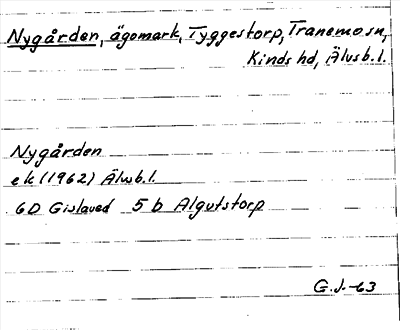 Nygården, ägomark, Tyggestorp, Tranemo sn,
Kinds hd, Älvsb. l.
Nygården
ek (1962) Älvsb. l.
6D Gislaved 5 b Algutstorp
G. J. -63